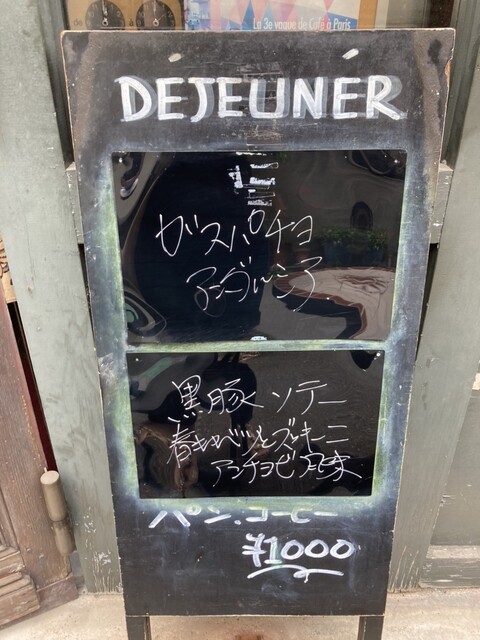 La 3e vague de Café à Paris
DEJEUNER
ガスパチョ
アンダルシア
黒豚 ソテー
春キャベツとズッキーニ
アンチョビ風味
パン.コーヒー
¥1000